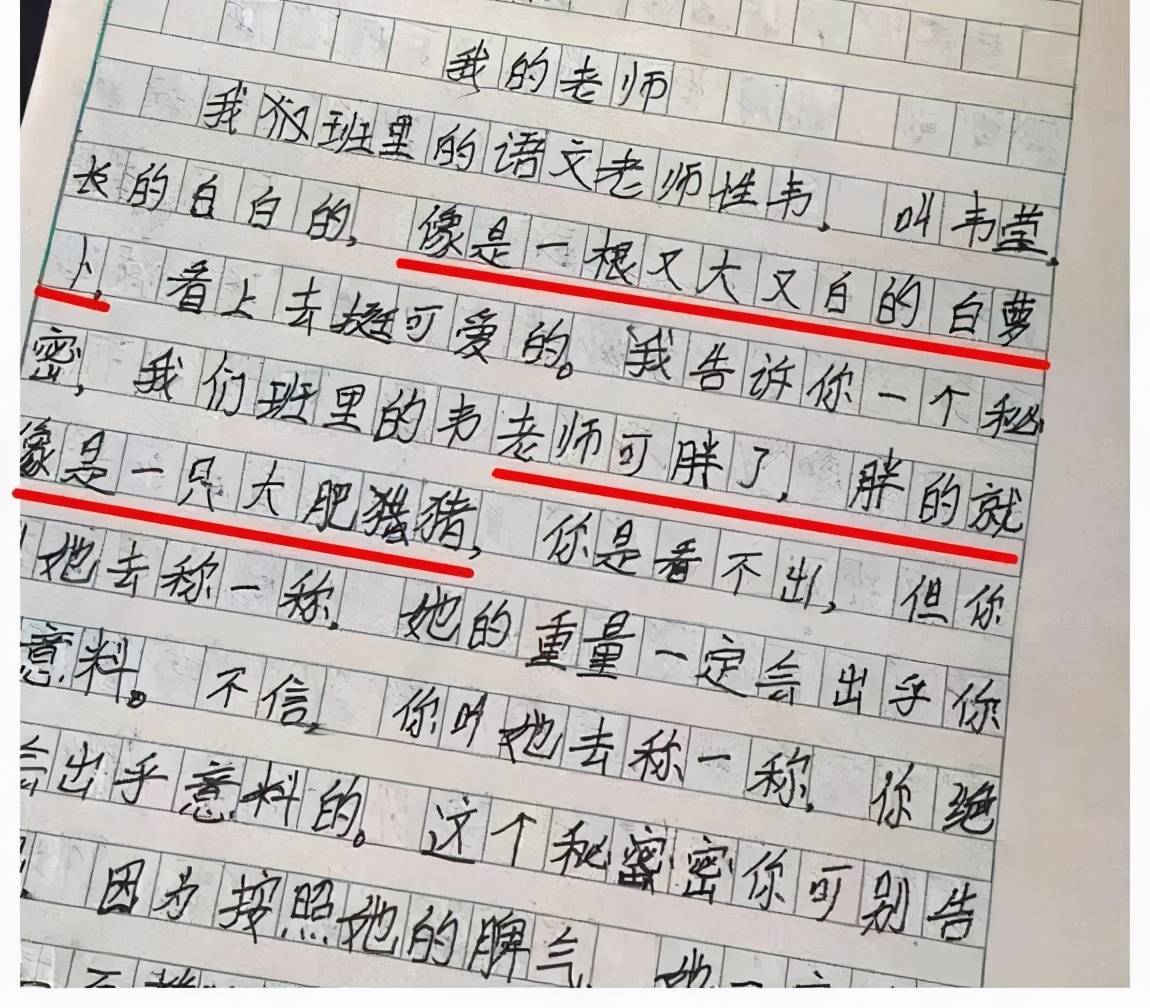 我的老师
我们班里的语文老师性韦,叫韦莹,
长的白白的,像是一根又大又白的白萝
卜,看上去挺可爱的。我告诉你一个秘
密,我们班里的韦老师可胖了,胖的就
像是一只大肥猪,你是看不出,但你
她去称一称,她的重量一定会出乎你
意料。不信,你叫她去称一称,你绝
会出乎意料的。这个秘密你可别告
因为按照她的脾气,她一